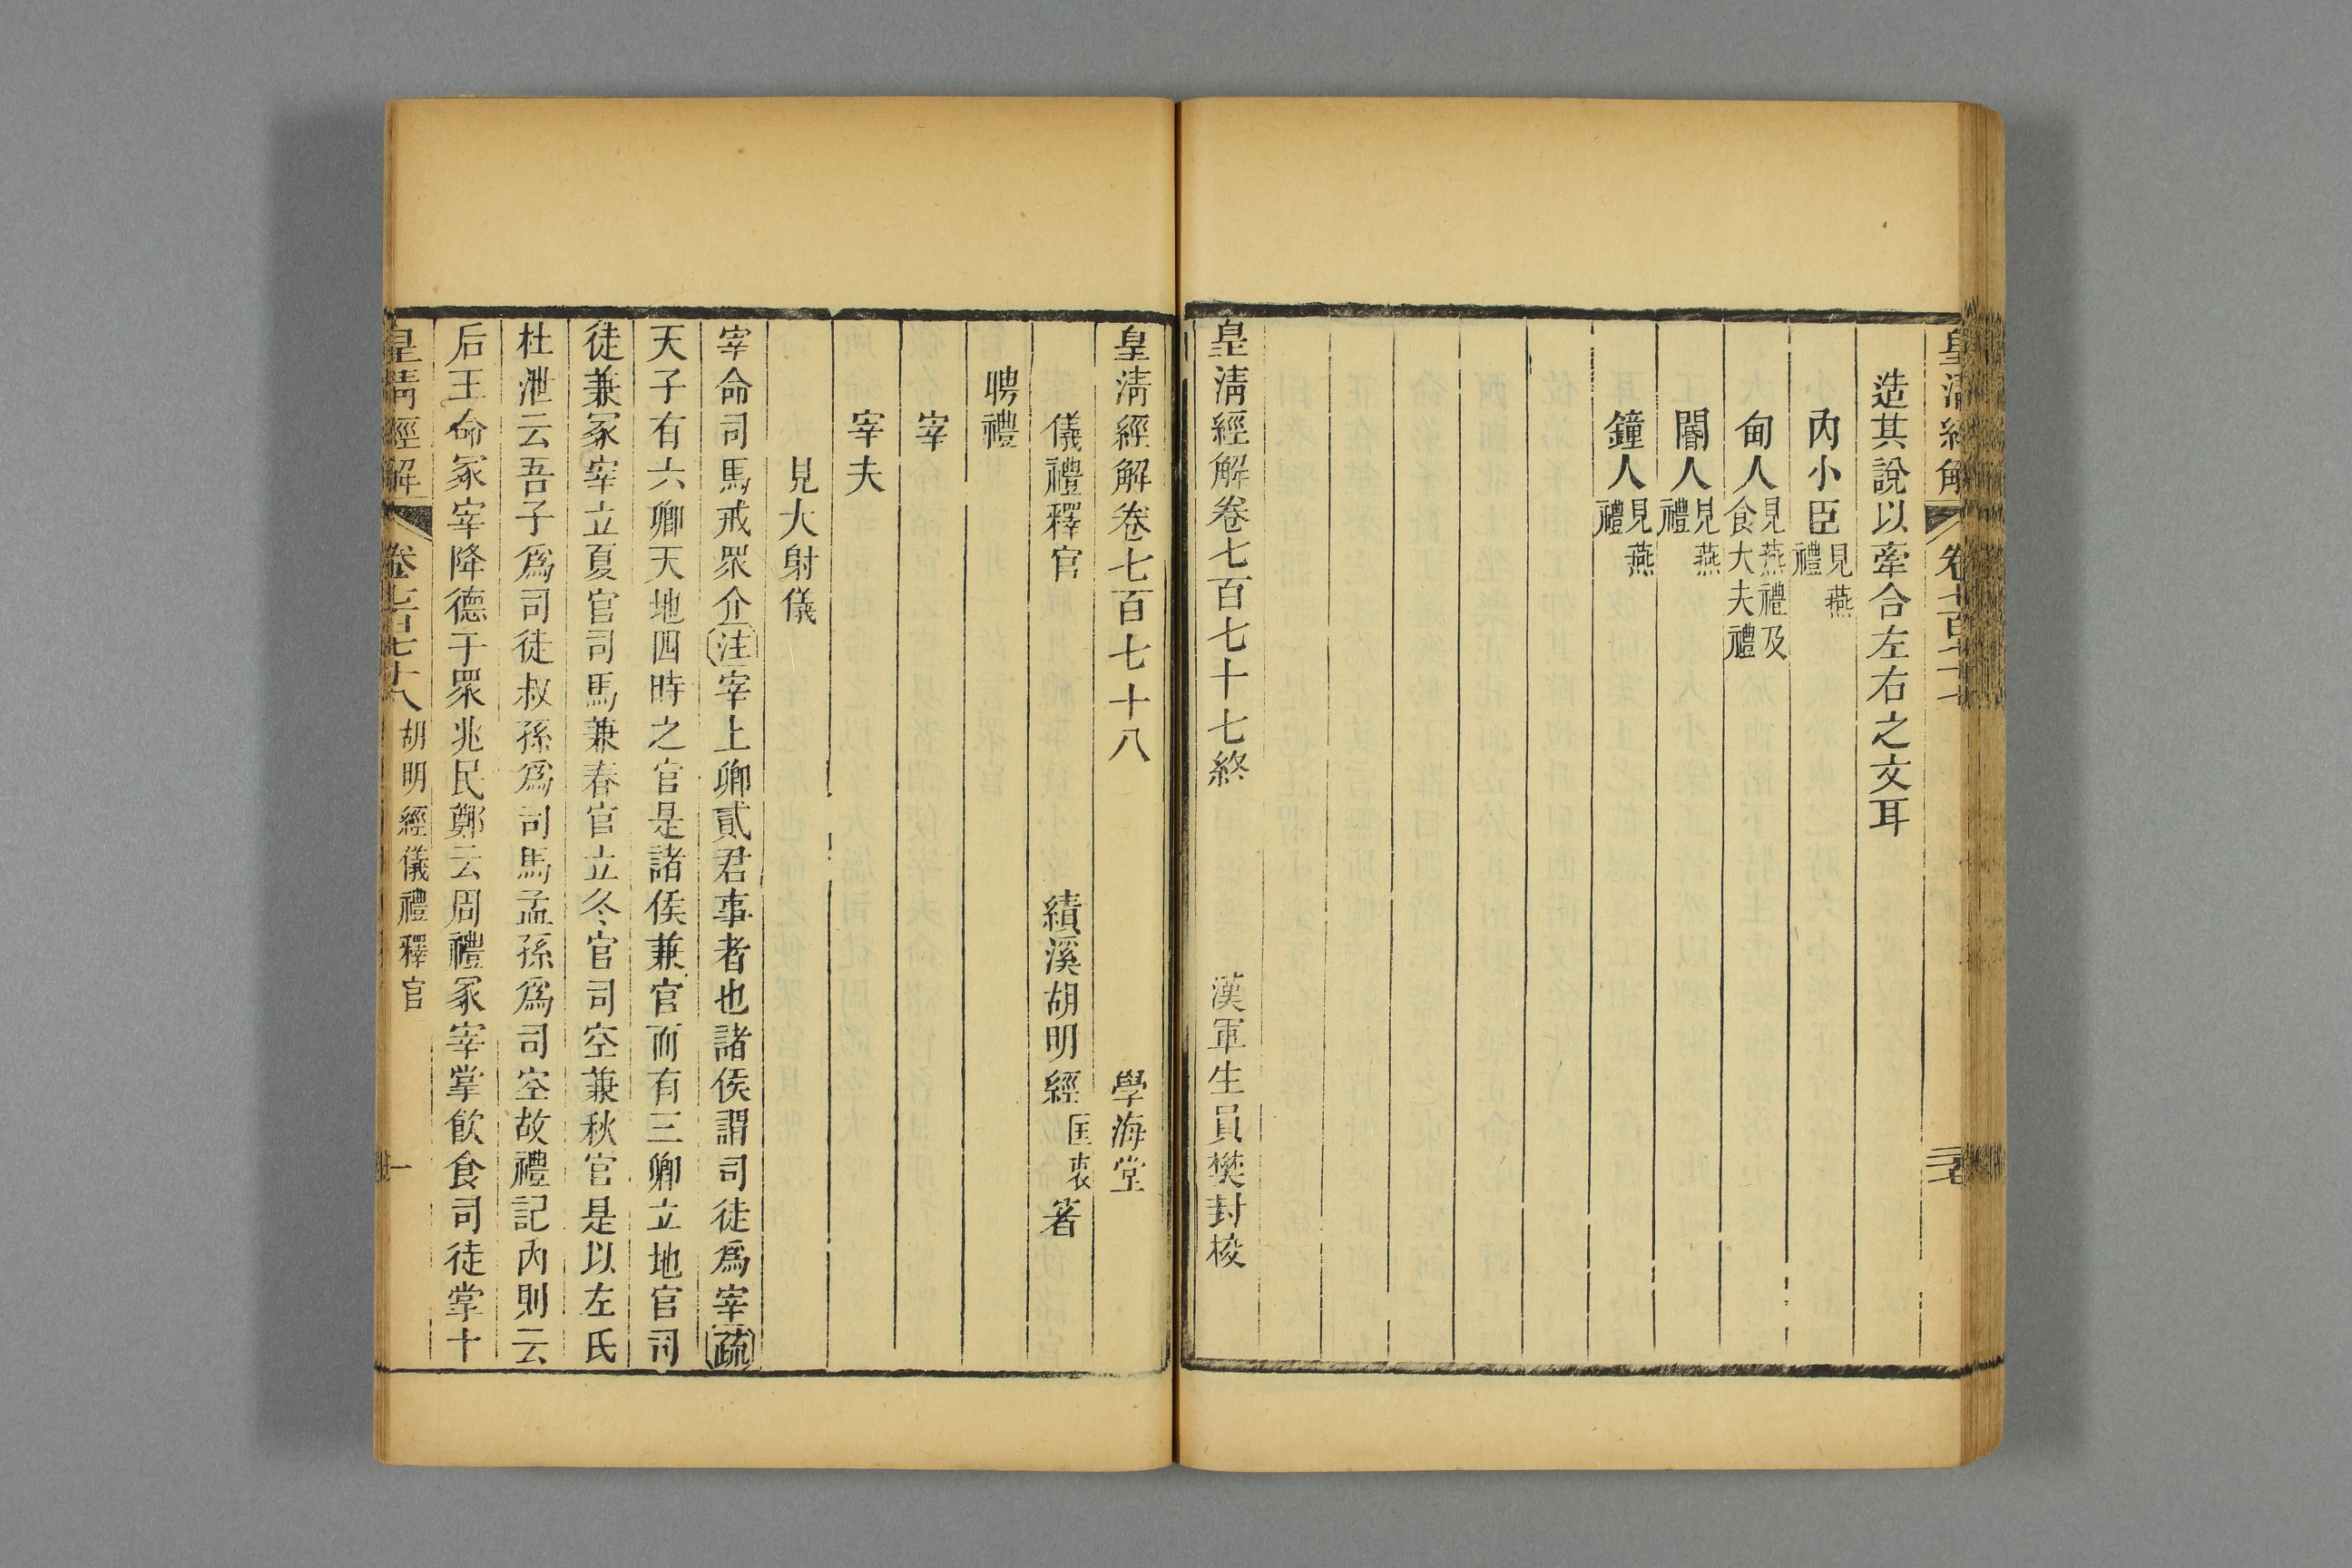 皇清經解 卷七百七十七
造其說以牽合左右之文耳
內小臣見燕禮
甸人見燕禮及食大夫禮
閽人見燕禮
鐘人見燕禮
皇清經解卷七百七十七終
漢軍生員樊封校
皇清經解卷七百七十八
學海堂
儀禮釋官
績溪胡明經匡衷著
聘禮
宰
宰夫
見大射儀
宰命司馬戒眾介注宰上卿貳君事者也諸侯謂司徒為宰疏
天子有六卿天地四時之官是諸侯兼官而有三卿立地官司
徒兼冢宰立夏官司馬兼春官立冬官司空兼秋官是以左氏
杜泄云吾子為司徒叔孫為司馬孟孫為司空故禮記內則云
后王命冢宰降德于眾兆民鄭云周禮冢宰掌飲食司徒掌十
皇清經解 卷七百七十八 胡明經儀禮釋官 一